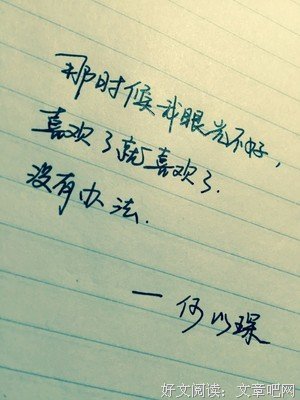 那时候我眼光不好，
喜欢了就喜欢了.
没有办法.
一何以琛
好文阅读：文章吧网